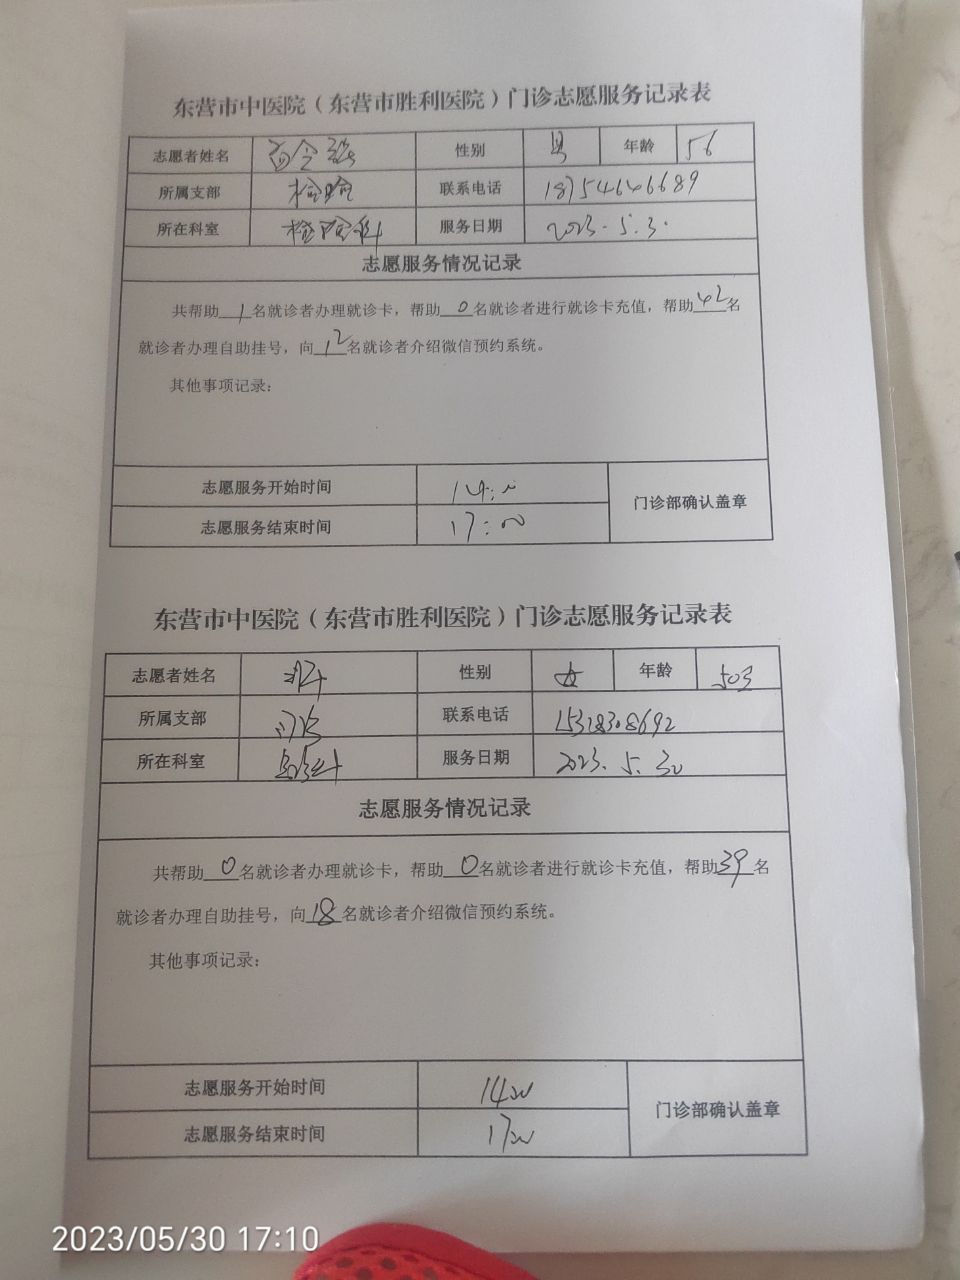 东营市中医院（东营市胜利医院）门诊志愿服务记录表
志愿者姓名 性别 男 年龄 56
所属支部 检验 联系电话 18754646689
所在科室 检验科 服务日期 2023.5.30
志愿服务情况记录
共帮助 1 名就诊者办理就诊卡，帮助 0 名就诊者进行就诊卡充值，帮助 42 名
就诊者办理自助挂号，向 12 名就诊者介绍微信预约系统。
其他事项记录：
志愿服务开始时间 14:00
门诊部确认盖章
志愿服务结束时间 17:00
东营市中医院（东营市胜利医院）门诊志愿服务记录表
志愿者姓名 性别 女 年龄
所属支部 联系电话
所在科室 服务日期 2023.5.30
志愿服务情况记录
共帮助 0 名就诊者办理就诊卡，帮助 0 名就诊者进行就诊卡充值，帮助 39 名
就诊者办理自助挂号，向 18 名就诊者介绍微信预约系统。
其他事项记录：
志愿服务开始时间 1400
门诊部确认盖章
志愿服务结束时间 1700
2023/05/30 17:10